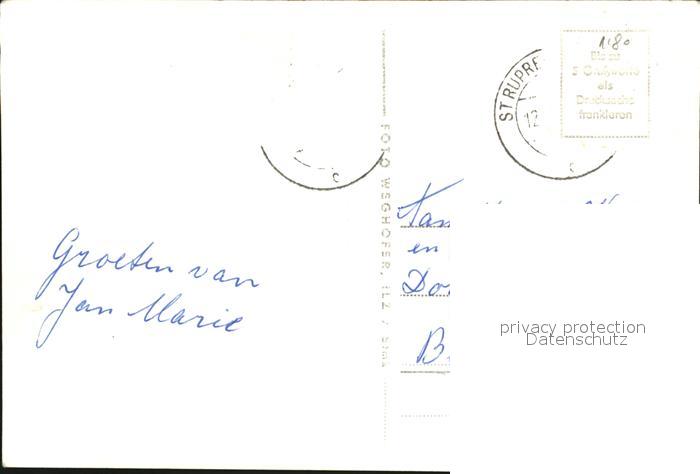 1'80
Bis zu
5 Grußworte
als
Drucksache
frankieren
ST RUPRE
12.
c
c
FOTO WEGHOFER, ILZ / Stmk
en
Groeten van
Jan Marie
privacy protection
Datenschutz